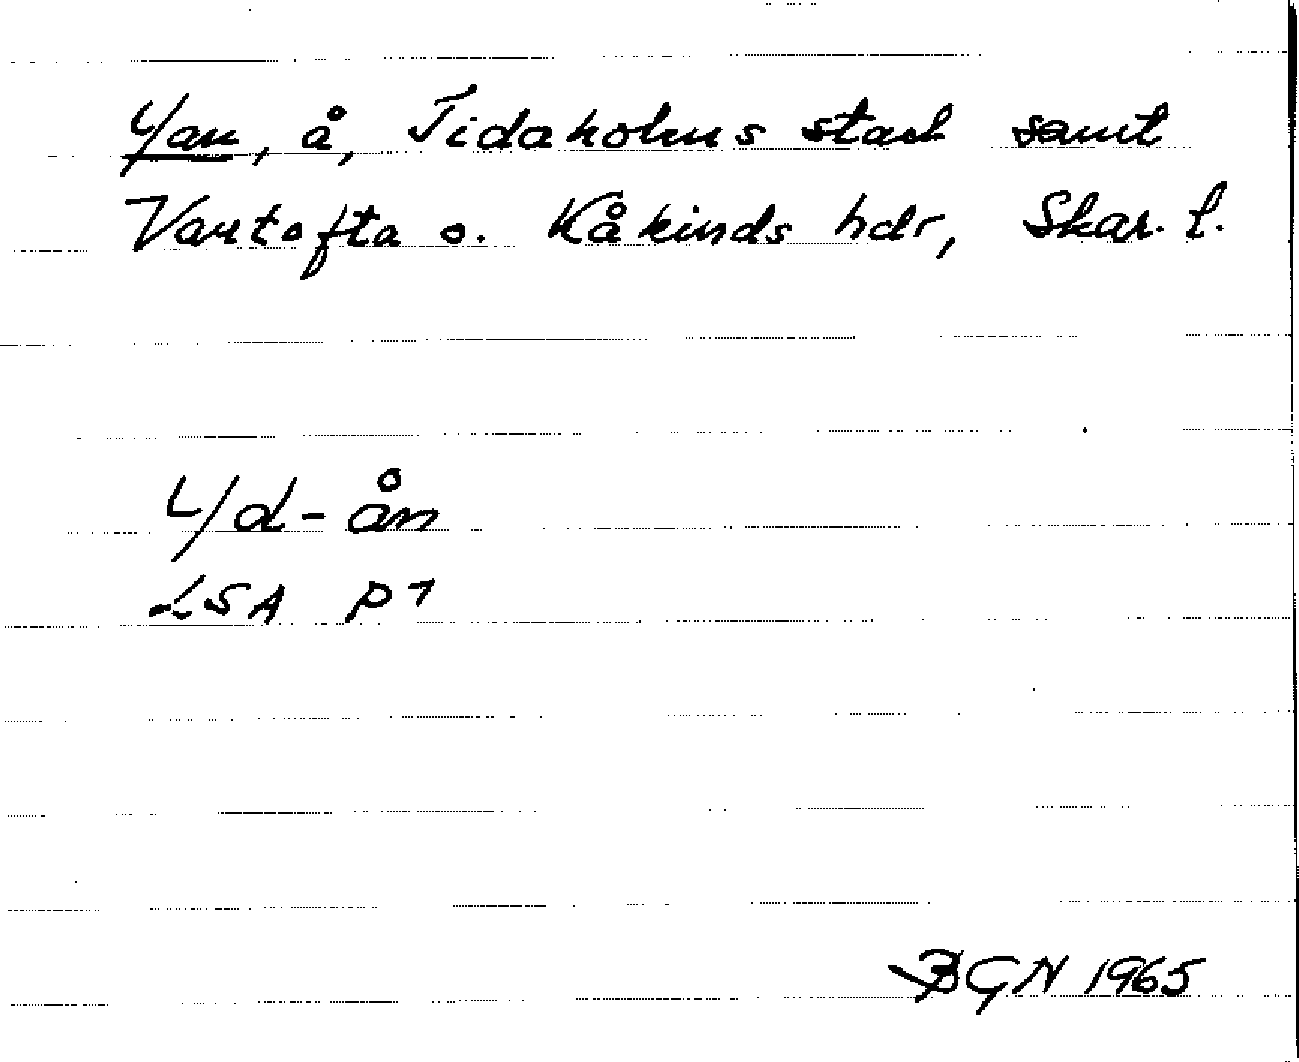 Yan, å, Tidaholms stad samt
Vartofta o. Kåkinds hdr, Skar. l.
Yd-ån
LSA P7
BGN 1965